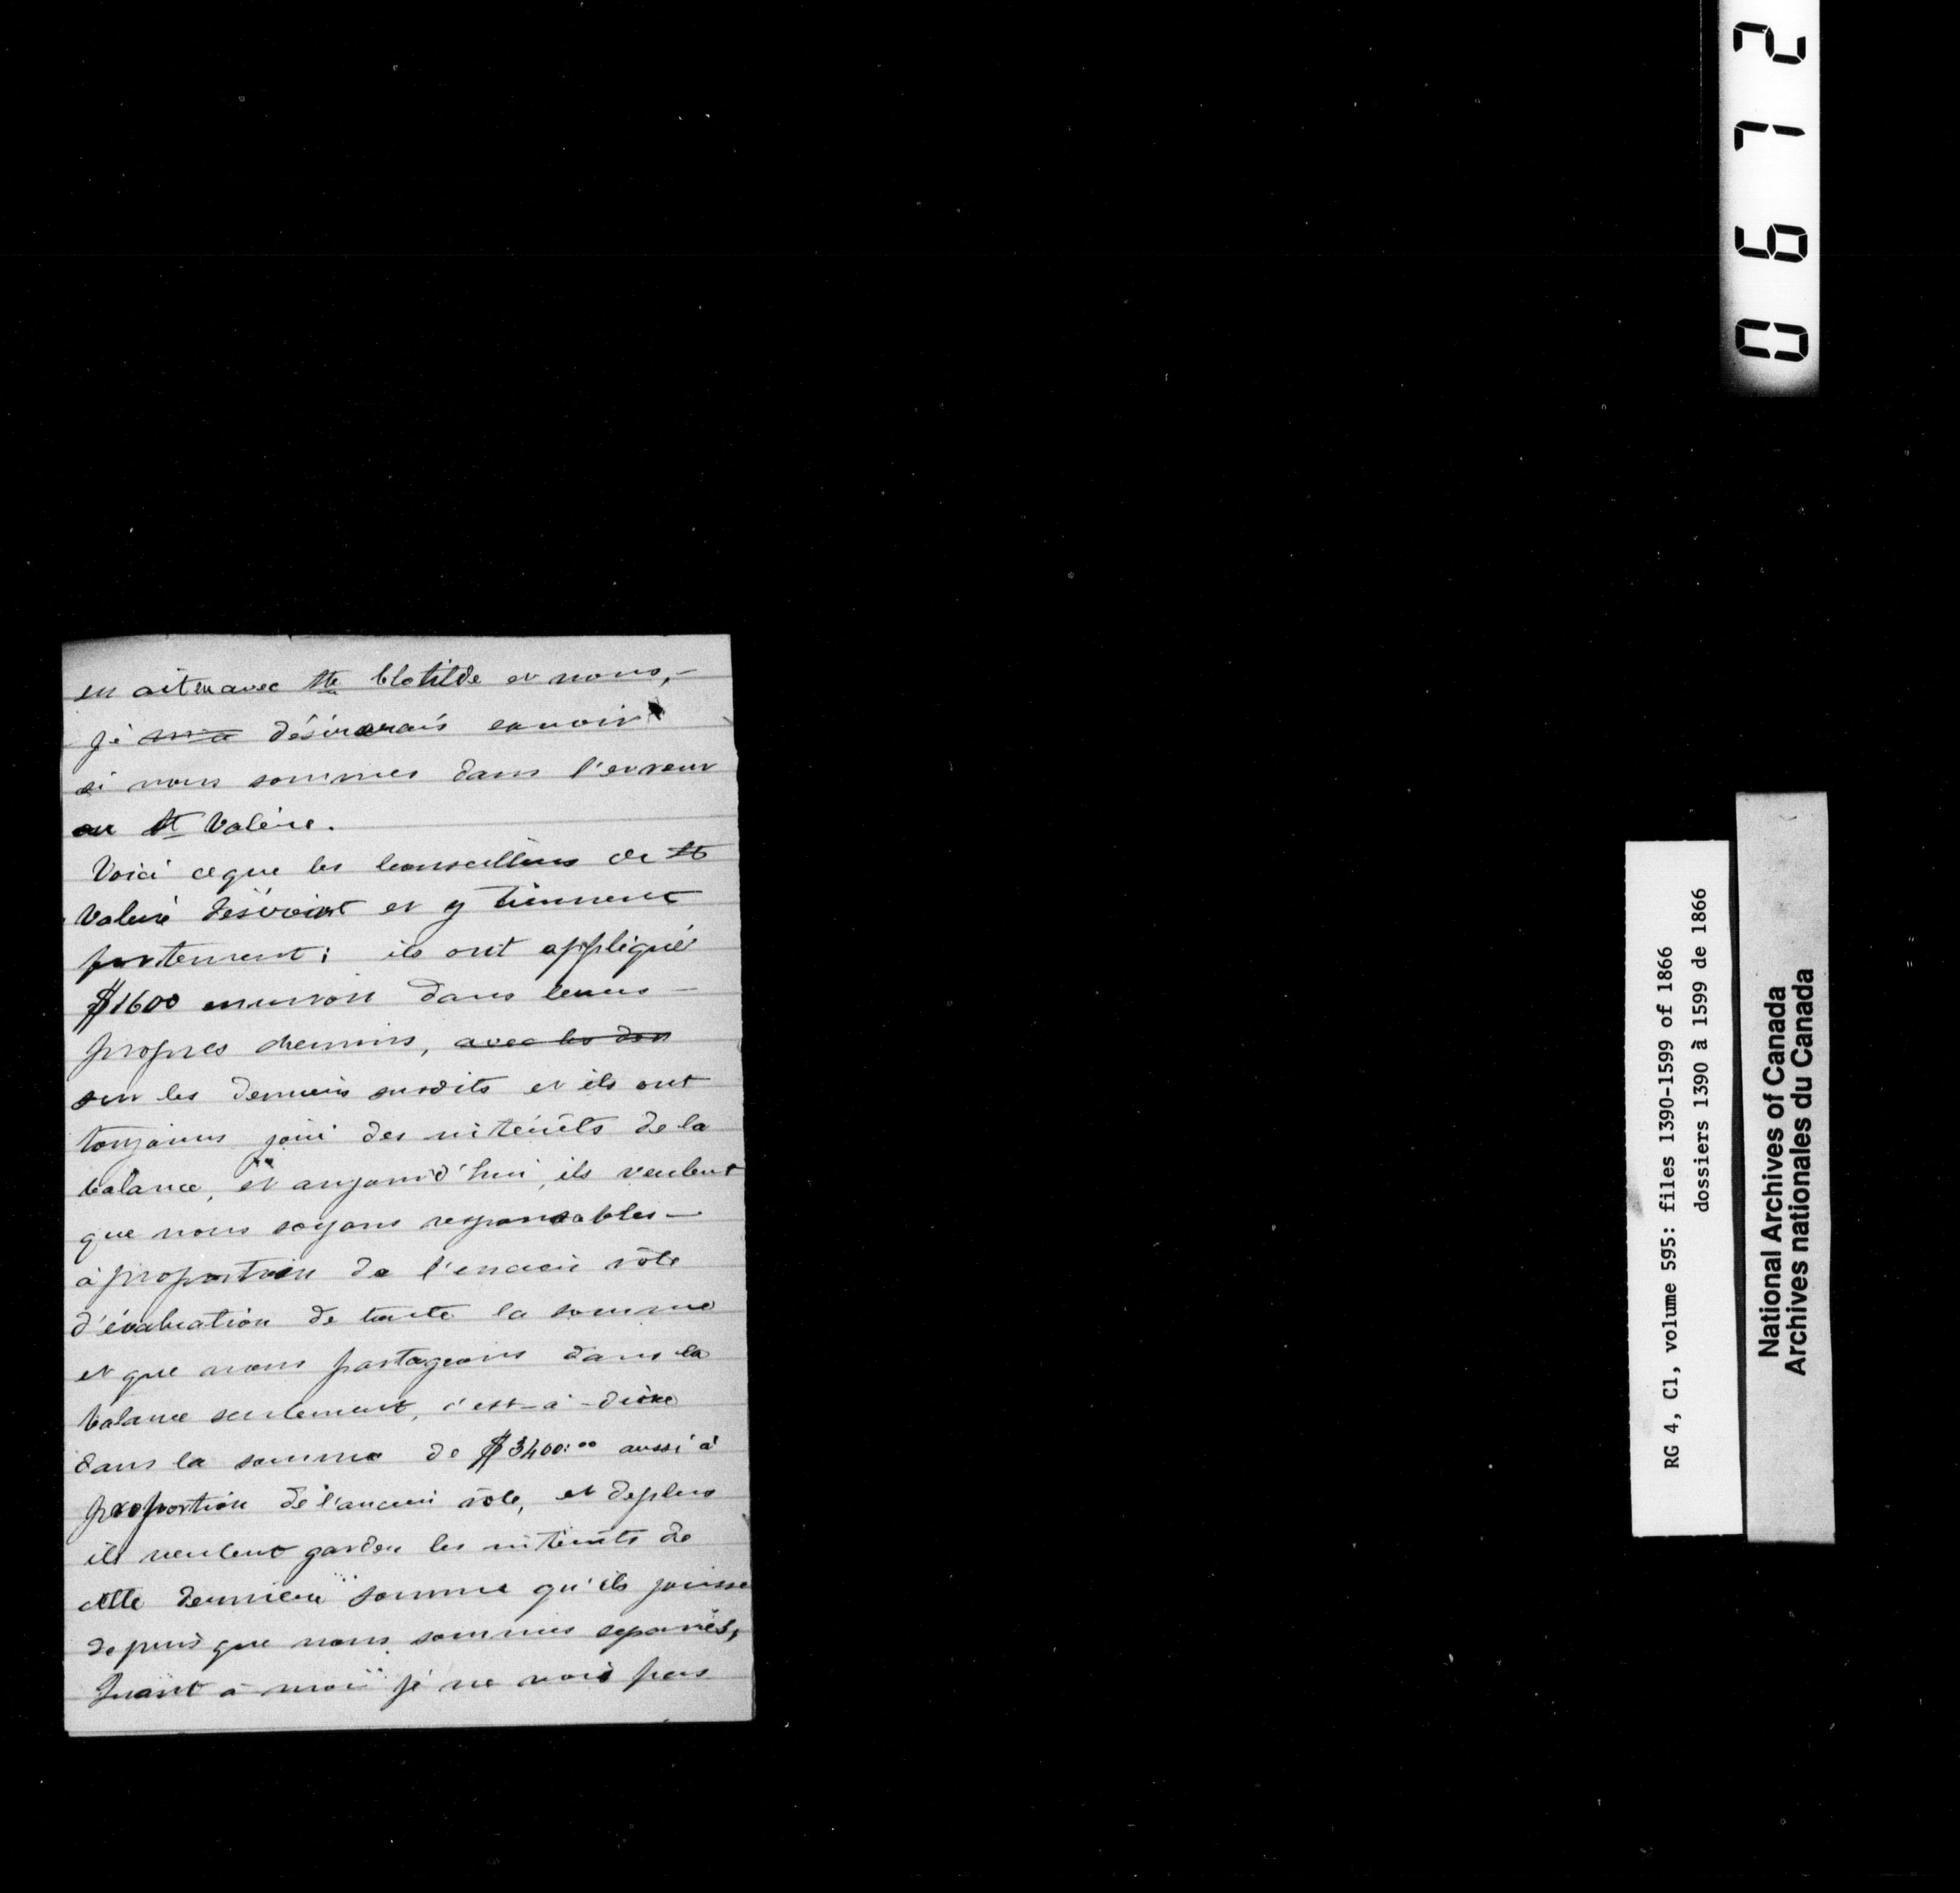 en ait eu avec Ste Clotilde et nous,-
je désirerais savoir
si nous sommes dans l'erreur
ou St Valère.
Voici ce que les Conseillers de St
Valère désirent et y tiennent
fortement; ils ont appliqué
$1600 environ dans leurs -
propres chemins, avec les don
sur les deniers susdits et ils ont
toujours joui des intérêts de la
balance, et aujourd'hui, ils veulent
que nous soyons responsables -
à proportion de l'ancien rôle
d'évaluation de toute la somme
et que nous partageons dans la
balance seulement, c'est-à-dire
dans la somme de $3400:00 aussi à
proportion de l'ancien rôle, et deplus
ils veulent garder les intérêts de
cette dernière somme qu'ils jouisse
depuis que nous sommes separés,
Quant à moi je ne vois pas
0672
RG 4, C1, volume 595: files 1390-1599 of 1866
dossiers 1390 à 1599 de 1866
National Archives of Canada
Archives nationales du Canada